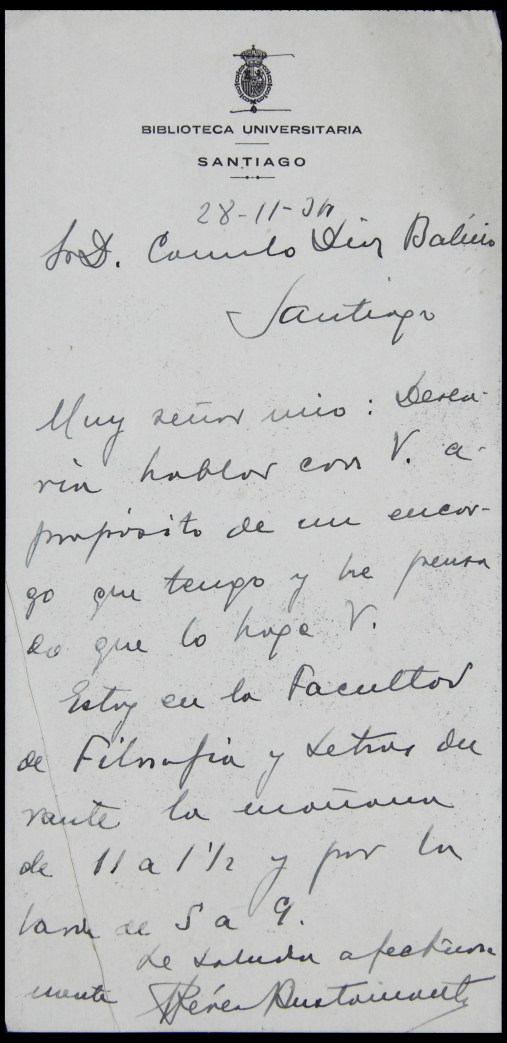 BIBLIOTECA UNIVERSITARIA
SANTIAGO
28-11-
Sr D. Camilo Díaz Baliño
Santiago
Muy señor mio: Desea-
ria hablar con V. a-
propósito de un encar-
go que tengo y he pensa
do que lo haga V.
Estoy en la Facultad
de Filosofia y Letras du
rante la mañana
de 11 a 1 1/2 y por la
tarde de 5 a 9.
Le saluda afectuosa
mente Pérez Bustamante